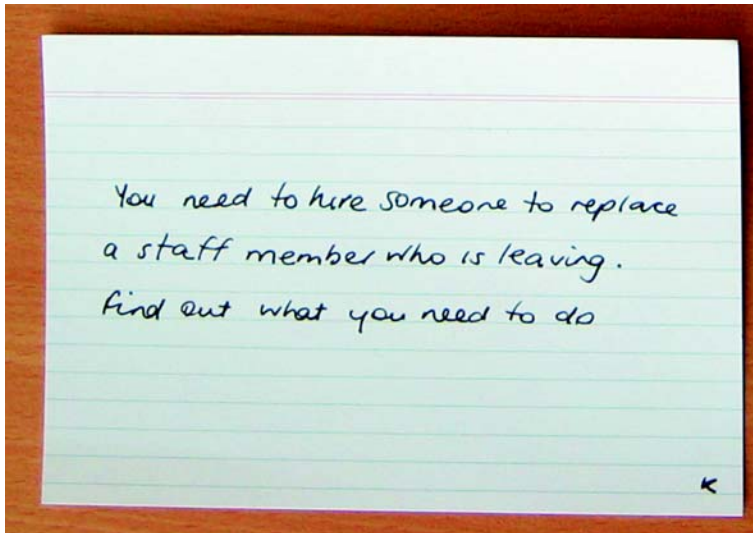 You need to hire someone to replace
a staff member who is leaving.
Find out what you need to do
K